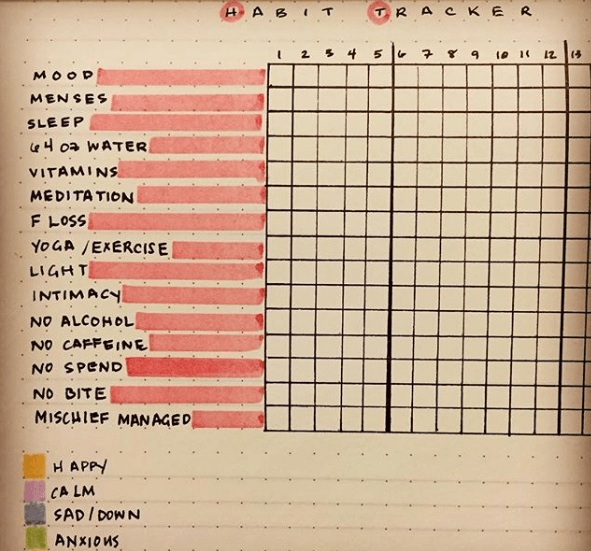 HABIT TRACKER
1 2 3 4 5 6 7 8 9 10 11 12 13
MOOD
MENSES
SLEEP
64 OZ WATER
VITAMINS
MEDITATION
FLOSS
YOGA / EXERCISE
LIGHT
INTIMACY
NO ALCOHOL
NO CAFFEINE
NO SPEND
NO BITE
MISCHIEF MANAGED
HAPPY
CALM
SAD / DOWN
ANXIOUS